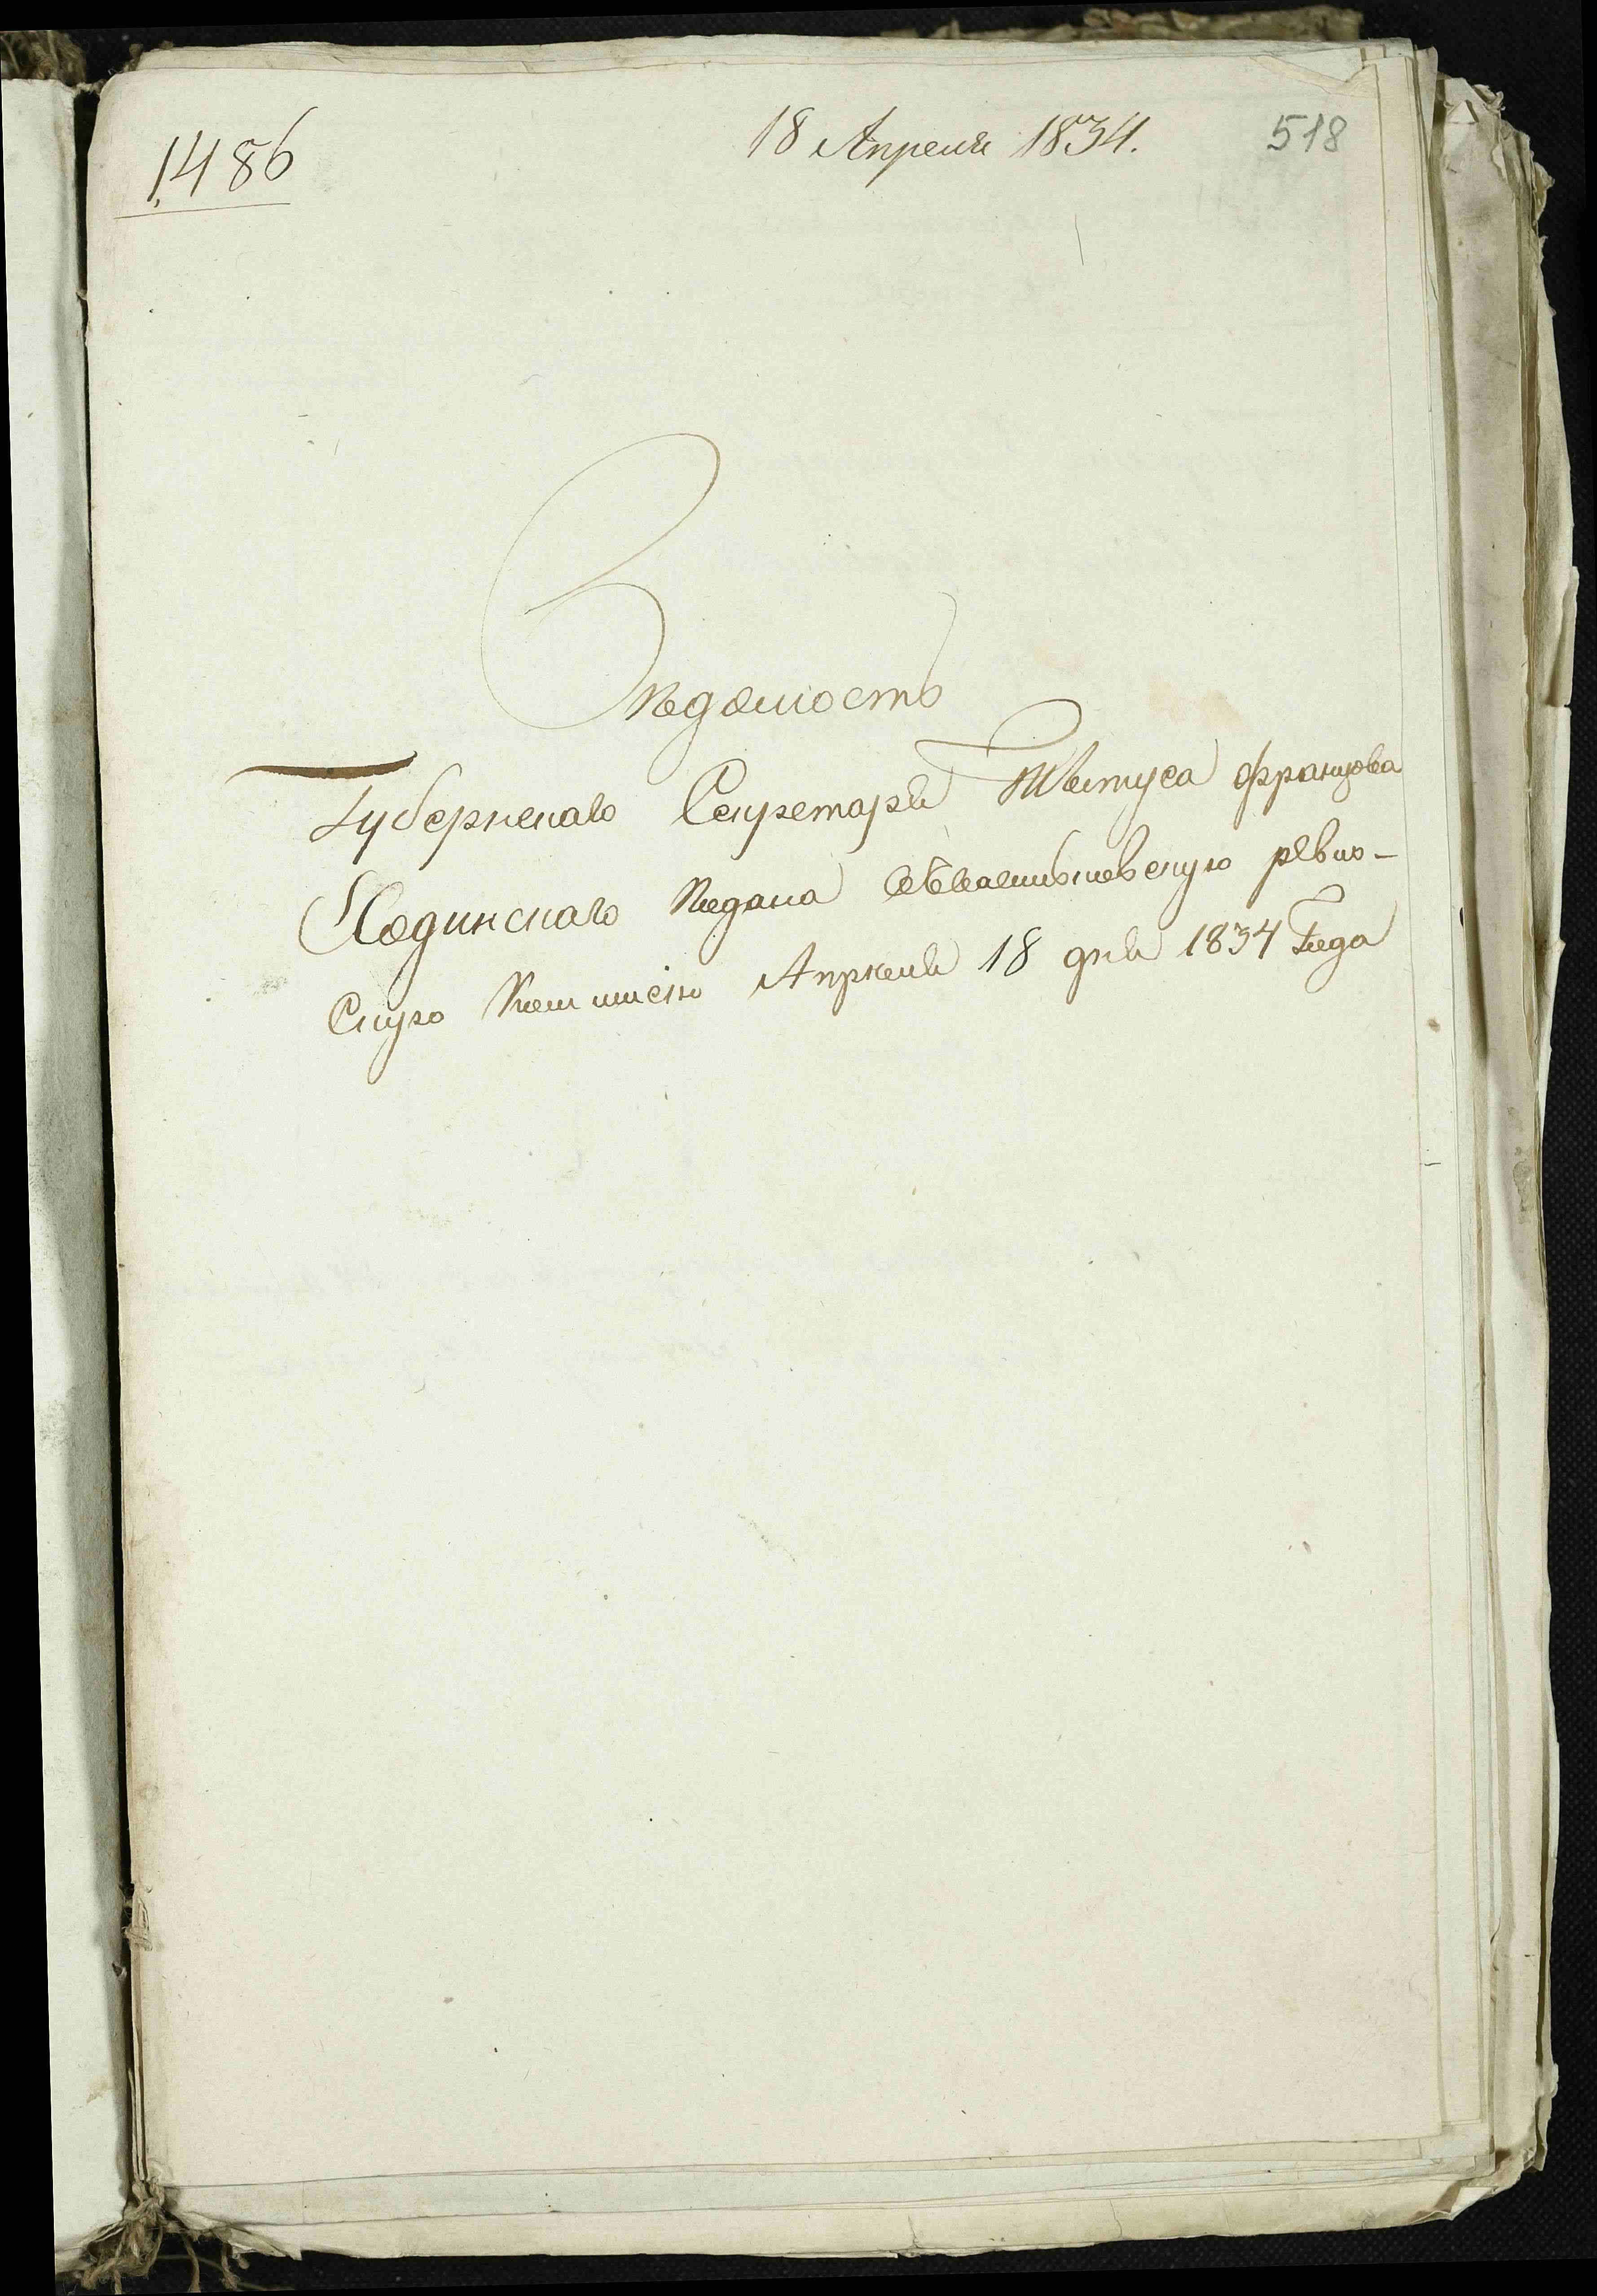 1486
18 Апреля 1834.
518
Ведомость
Губернскаго Секретаря Титуса Францова
Лодинскаго Подана въ ревио-
скую Коммисію Апреля 18 дня 1834 Года